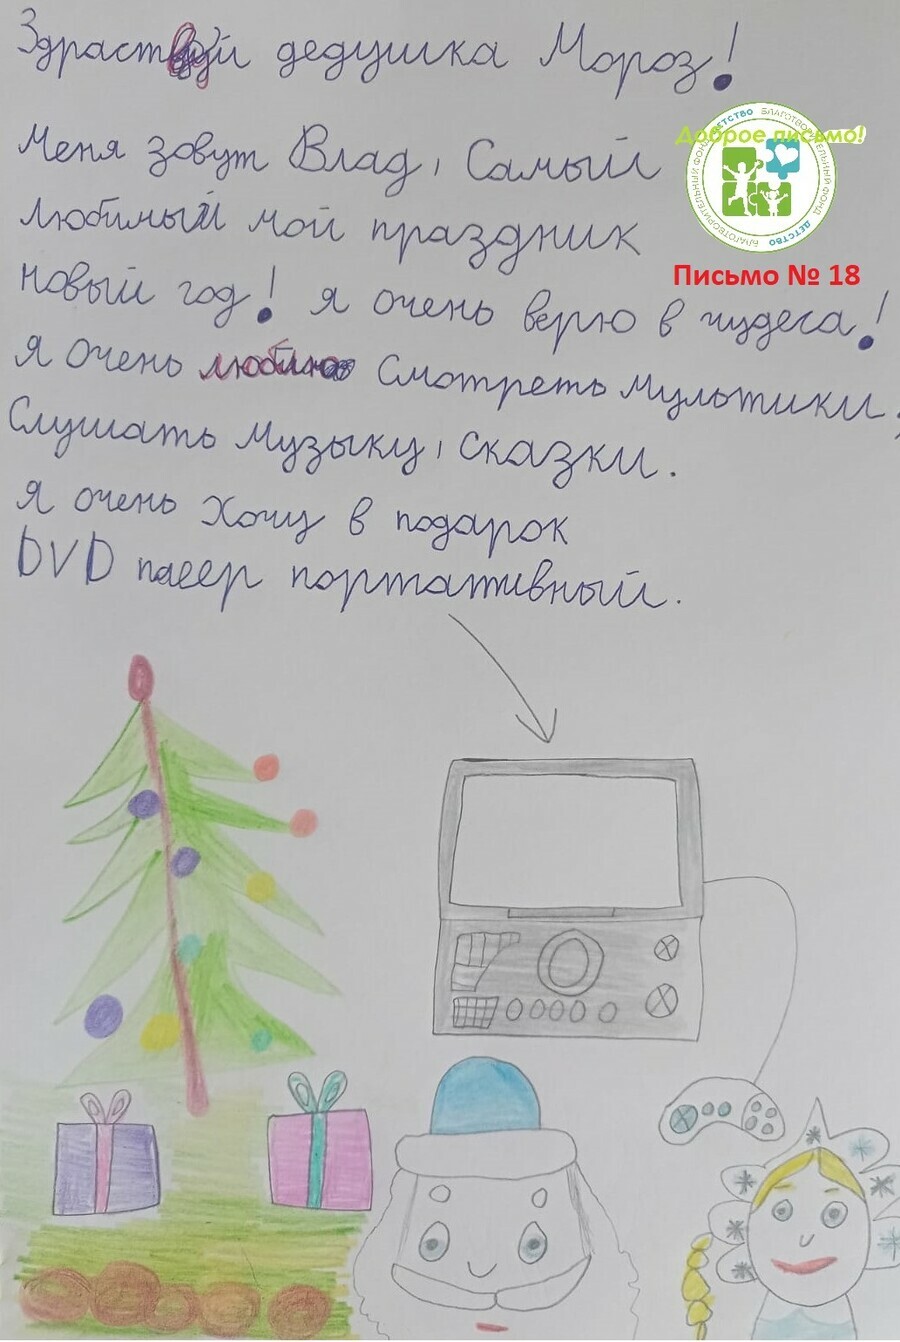 Здраствуй дедушка Мороз!
Меня зовут Влад, Самый
любимый мой праздник
новый год! я очень верю в чудеса!
я очень люблю смотреть мультики,
Слушать музыку, сказки.
я очень хочу в подарок
DVD пасер портативный.
Доброе письмо!
БЛАГОТВОРИТЕЛЬНЫЙ ФОНД ДЕТСТВО БЛАГОТВОРИТЕЛЬНЫЙ ФОНД ДЕТСТВО
Письмо № 18